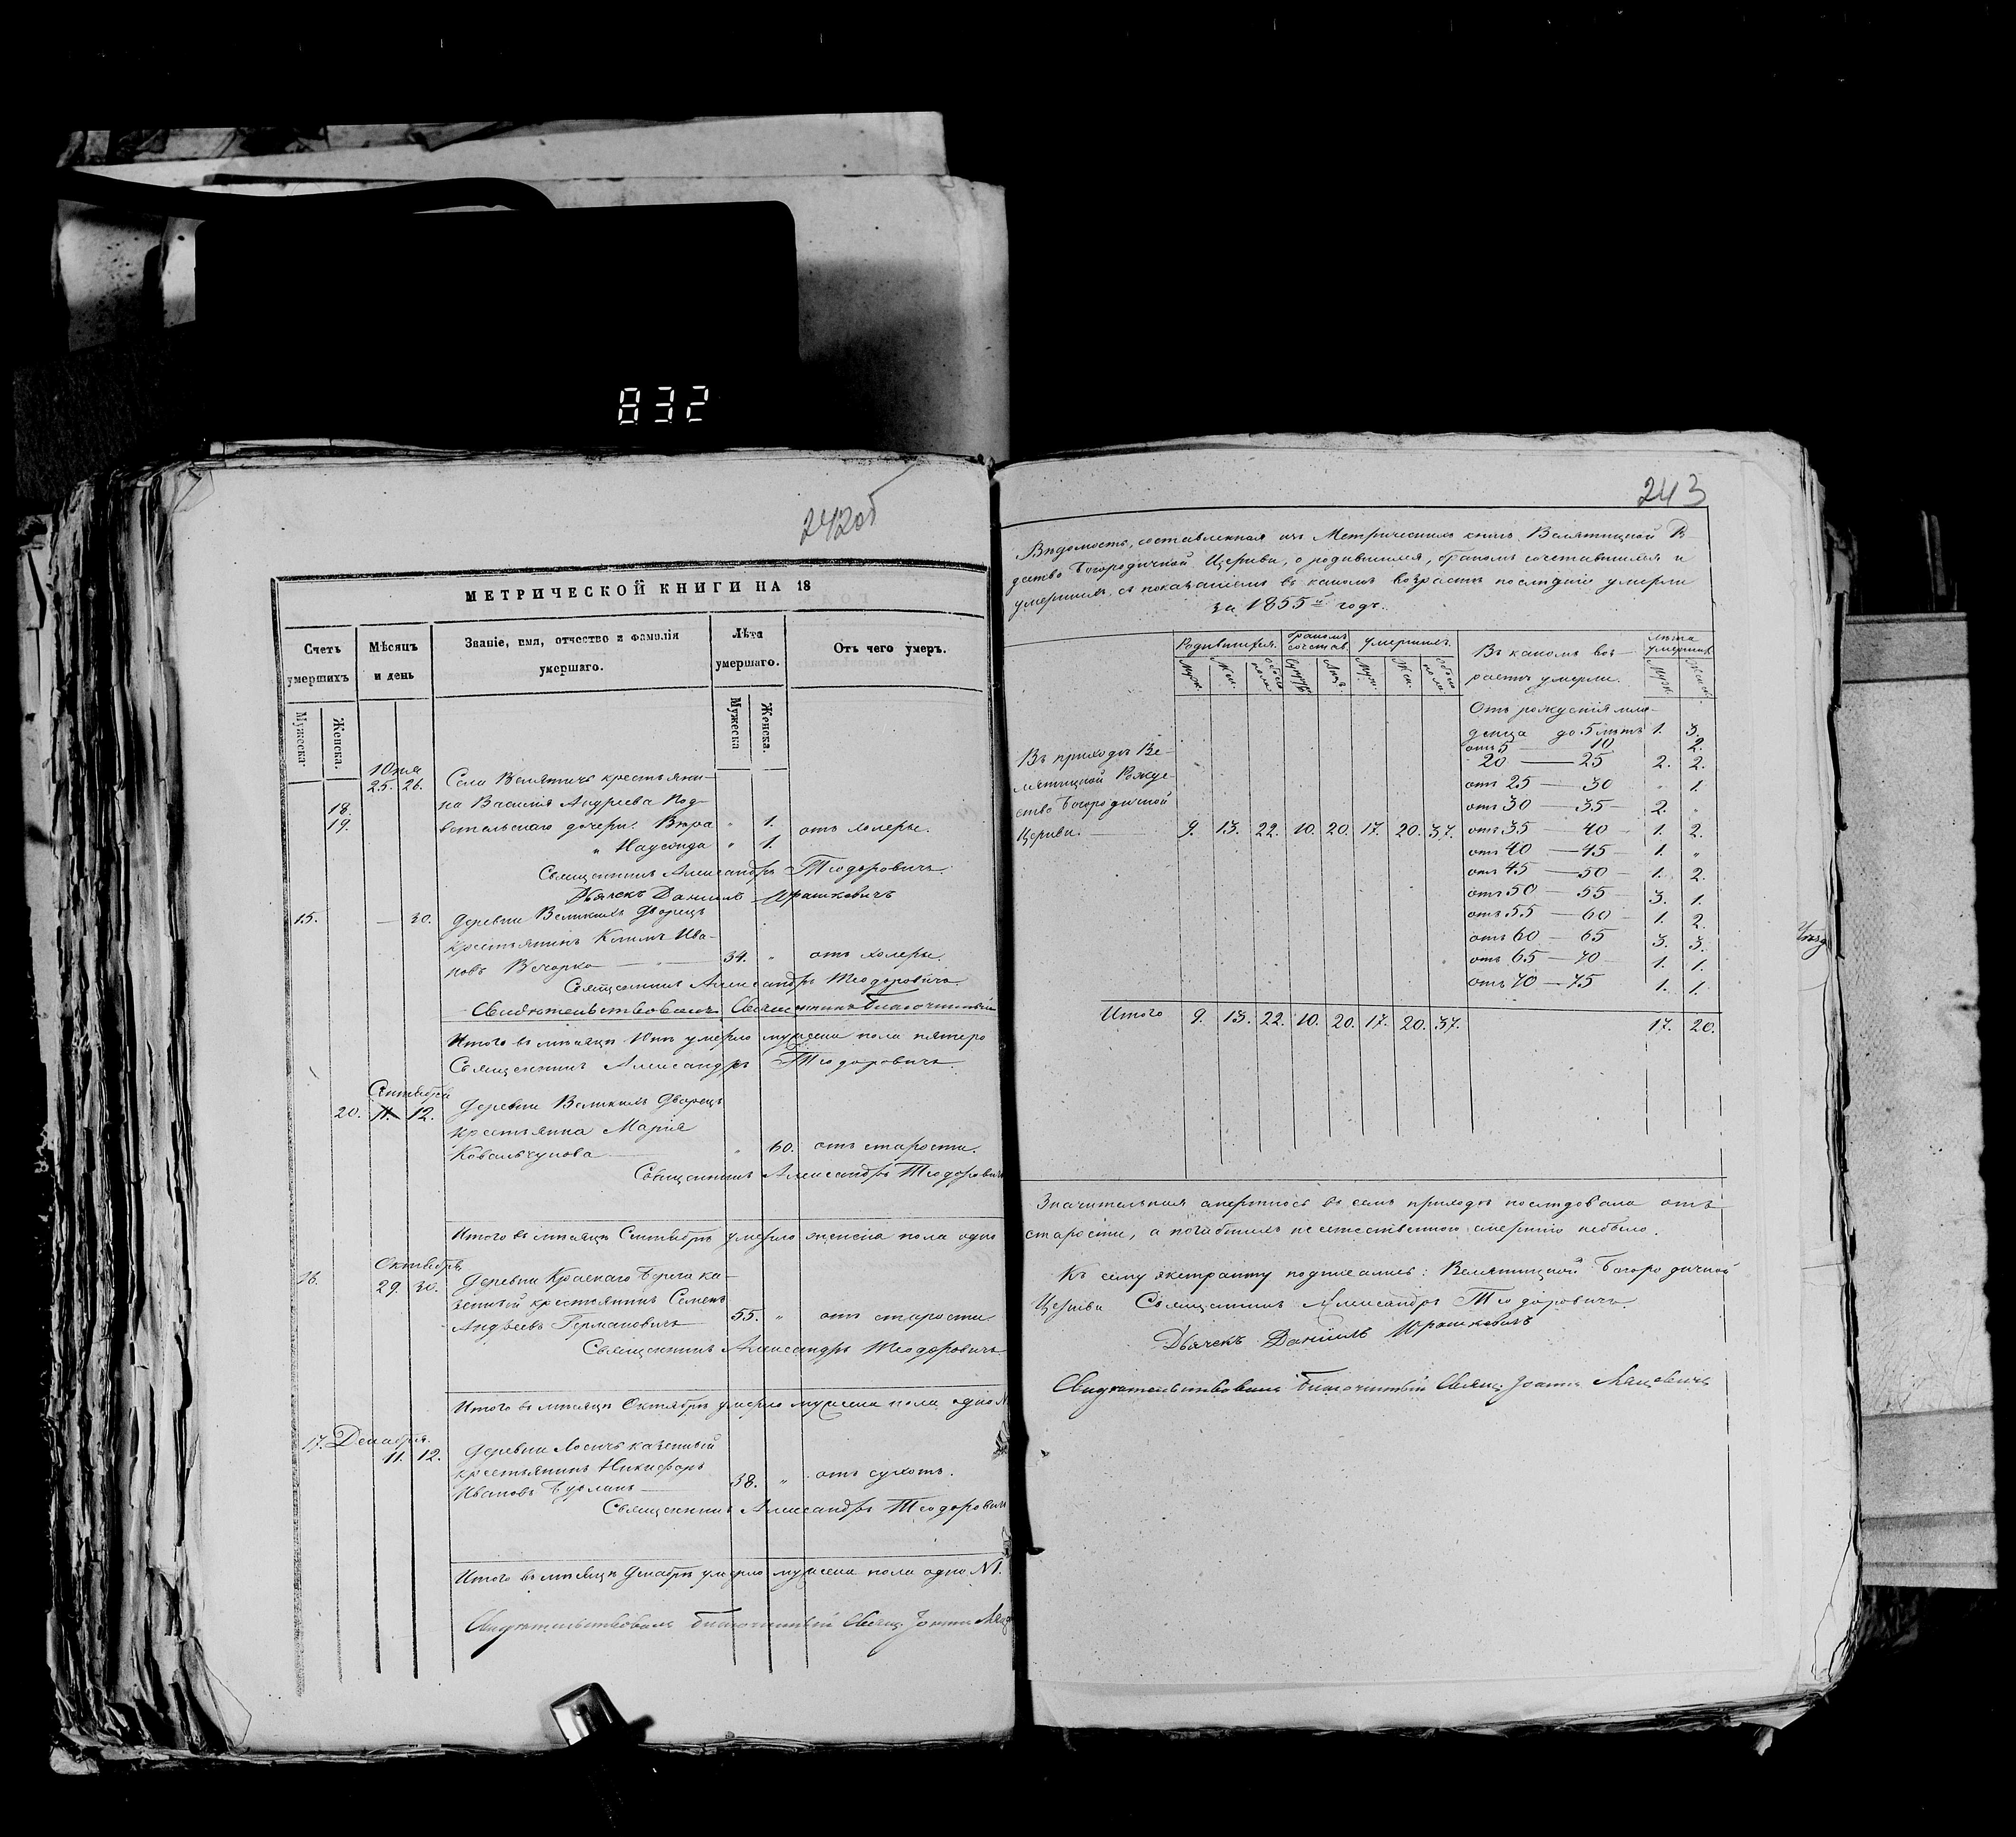 832
242об
МЕТРИЧЕСКОЙ КНИГИ НА 18
Счетъ умершихъ
Мѣсяцъ и день
Званіе, имя, отчество и фамилія умершаго.
Лѣта умершаго.
Отъ чего умеръ.
Мужеска
Женска.
Мужеска
Женска.
Юля
25. 26. Села Велятичъ крестьяни-
18. на Василія Андреева Под-
19. вительскаго дочери. Вѣра " 1. отъ холеры.
" " 1.
Священникъ Александръ Теодоровичъ.
Дьячекъ Даниилъ Юрашкевичъ
15. — 30. Деревни Великихъ Дворецъ
крестьянинъ Климъ Ива-
новъ Вечорко — 34. " отъ холеры.
Священникъ Александръ Теодоровичъ.
Свидѣтельствовалъ Священникъ Благочинный
Итого въ мѣсяцѣ умерло мужеска пола пятеро
Священникъ Александръ Теодоровичъ.
Сентября
20. 11. 12. Деревни Великихъ Дворецъ
крестьянка Марія
Ковальчукова " 60. отъ старости.
Священникъ Александръ Теодоровичъ
Итого въ мѣсяцѣ Сентябрѣ умерло женска пола одно
Октябрь
16. 29. 30. Деревни Краснаго Берега ка-
зенный крестьянинъ Семенъ
Андреевъ Германовичъ 55. " отъ старости.
Священникъ Александръ Теодоровичъ.
Итого въ мѣсяцѣ Октябрѣ умерло мужеска пола одно
17. Декабря.
11. 12. Деревни Лосичъ казенный
крестьянинъ Никифоръ
Ивановъ 38. " отъ сухотъ.
Священникъ Александръ Теодоровичъ
Итого въ мѣсяцѣ Декабрѣ умерло мужеска пола одно №1.
Свидѣтельствовалъ благочинный Свящ. Іоаннъ
243
Вѣдомость, составленная изъ Метрическихъ книгъ Велятицкой Р-
дество Богородичной Церкви, о родившихся, бракомъ сочетавшихся и
умершихъ, съ показаніемъ въ какомъ возрастѣ послѣдніе умерли
за 1855й годъ.
Родившихся.
бракомъ сочетав.
умершихъ.
Въ какомъ воз-
растѣ умерли.
лѣта умершихъ
Муж. Жен. обоего пола Супруж. Лицъ Муж. Жен. обоего пола Муж. Женск.
Отъ рожденія мла-
денца до 5 лѣтъ 1. 3.
отъ 5 — 10 2.
20 — 25 2. 2.
отъ 25 — 30 " 1.
отъ 30 — 35 2. "
Въ приходѣ Ве-
лятицкой Рожде-
ство Богородичной
Церкви. — 9. 13. 22. 10. 20. 17. 20. 37.
отъ 35 — 40 1. 2.
отъ 40 — 45 1. "
отъ 45 — 50 1. 2.
отъ 50 — 55 3. 1.
отъ 55 — 60 1. 2.
отъ 60 — 65 3. 3.
отъ 65 — 70 1. 1.
отъ 70 — 75 1. 1.
Итого 9. 13. 22. 10. 20. 17. 20. 37. 17. 20.
Значительная смертность въ семъ приходѣ послѣдовала отъ
старости, а погибшихъ неестественною смертію небыло.
Къ сему экстракту подписались: Велятицкой Богородичной
Церкви Священникъ Александръ Теодоровичъ.
Дьячекъ Даниилъ Юрашкевичъ
Свидѣтельствовалъ благочинный Свящ. Іоаннъ